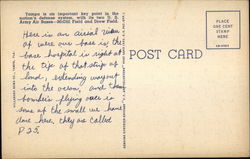 Tampa is an important key point in the
nation's defense system, with its two U. S.
Army Air Bases—McDill Field and Drew Field.
Here is an airial view
of were our base is the
base hospital is right at
the tip of that strip of
land, extending way out
into the ocean, and those
bombers flying over is
some of the small ones
done here. they are called
P.25.
POST CARD
PLACE
STAMP
HERE